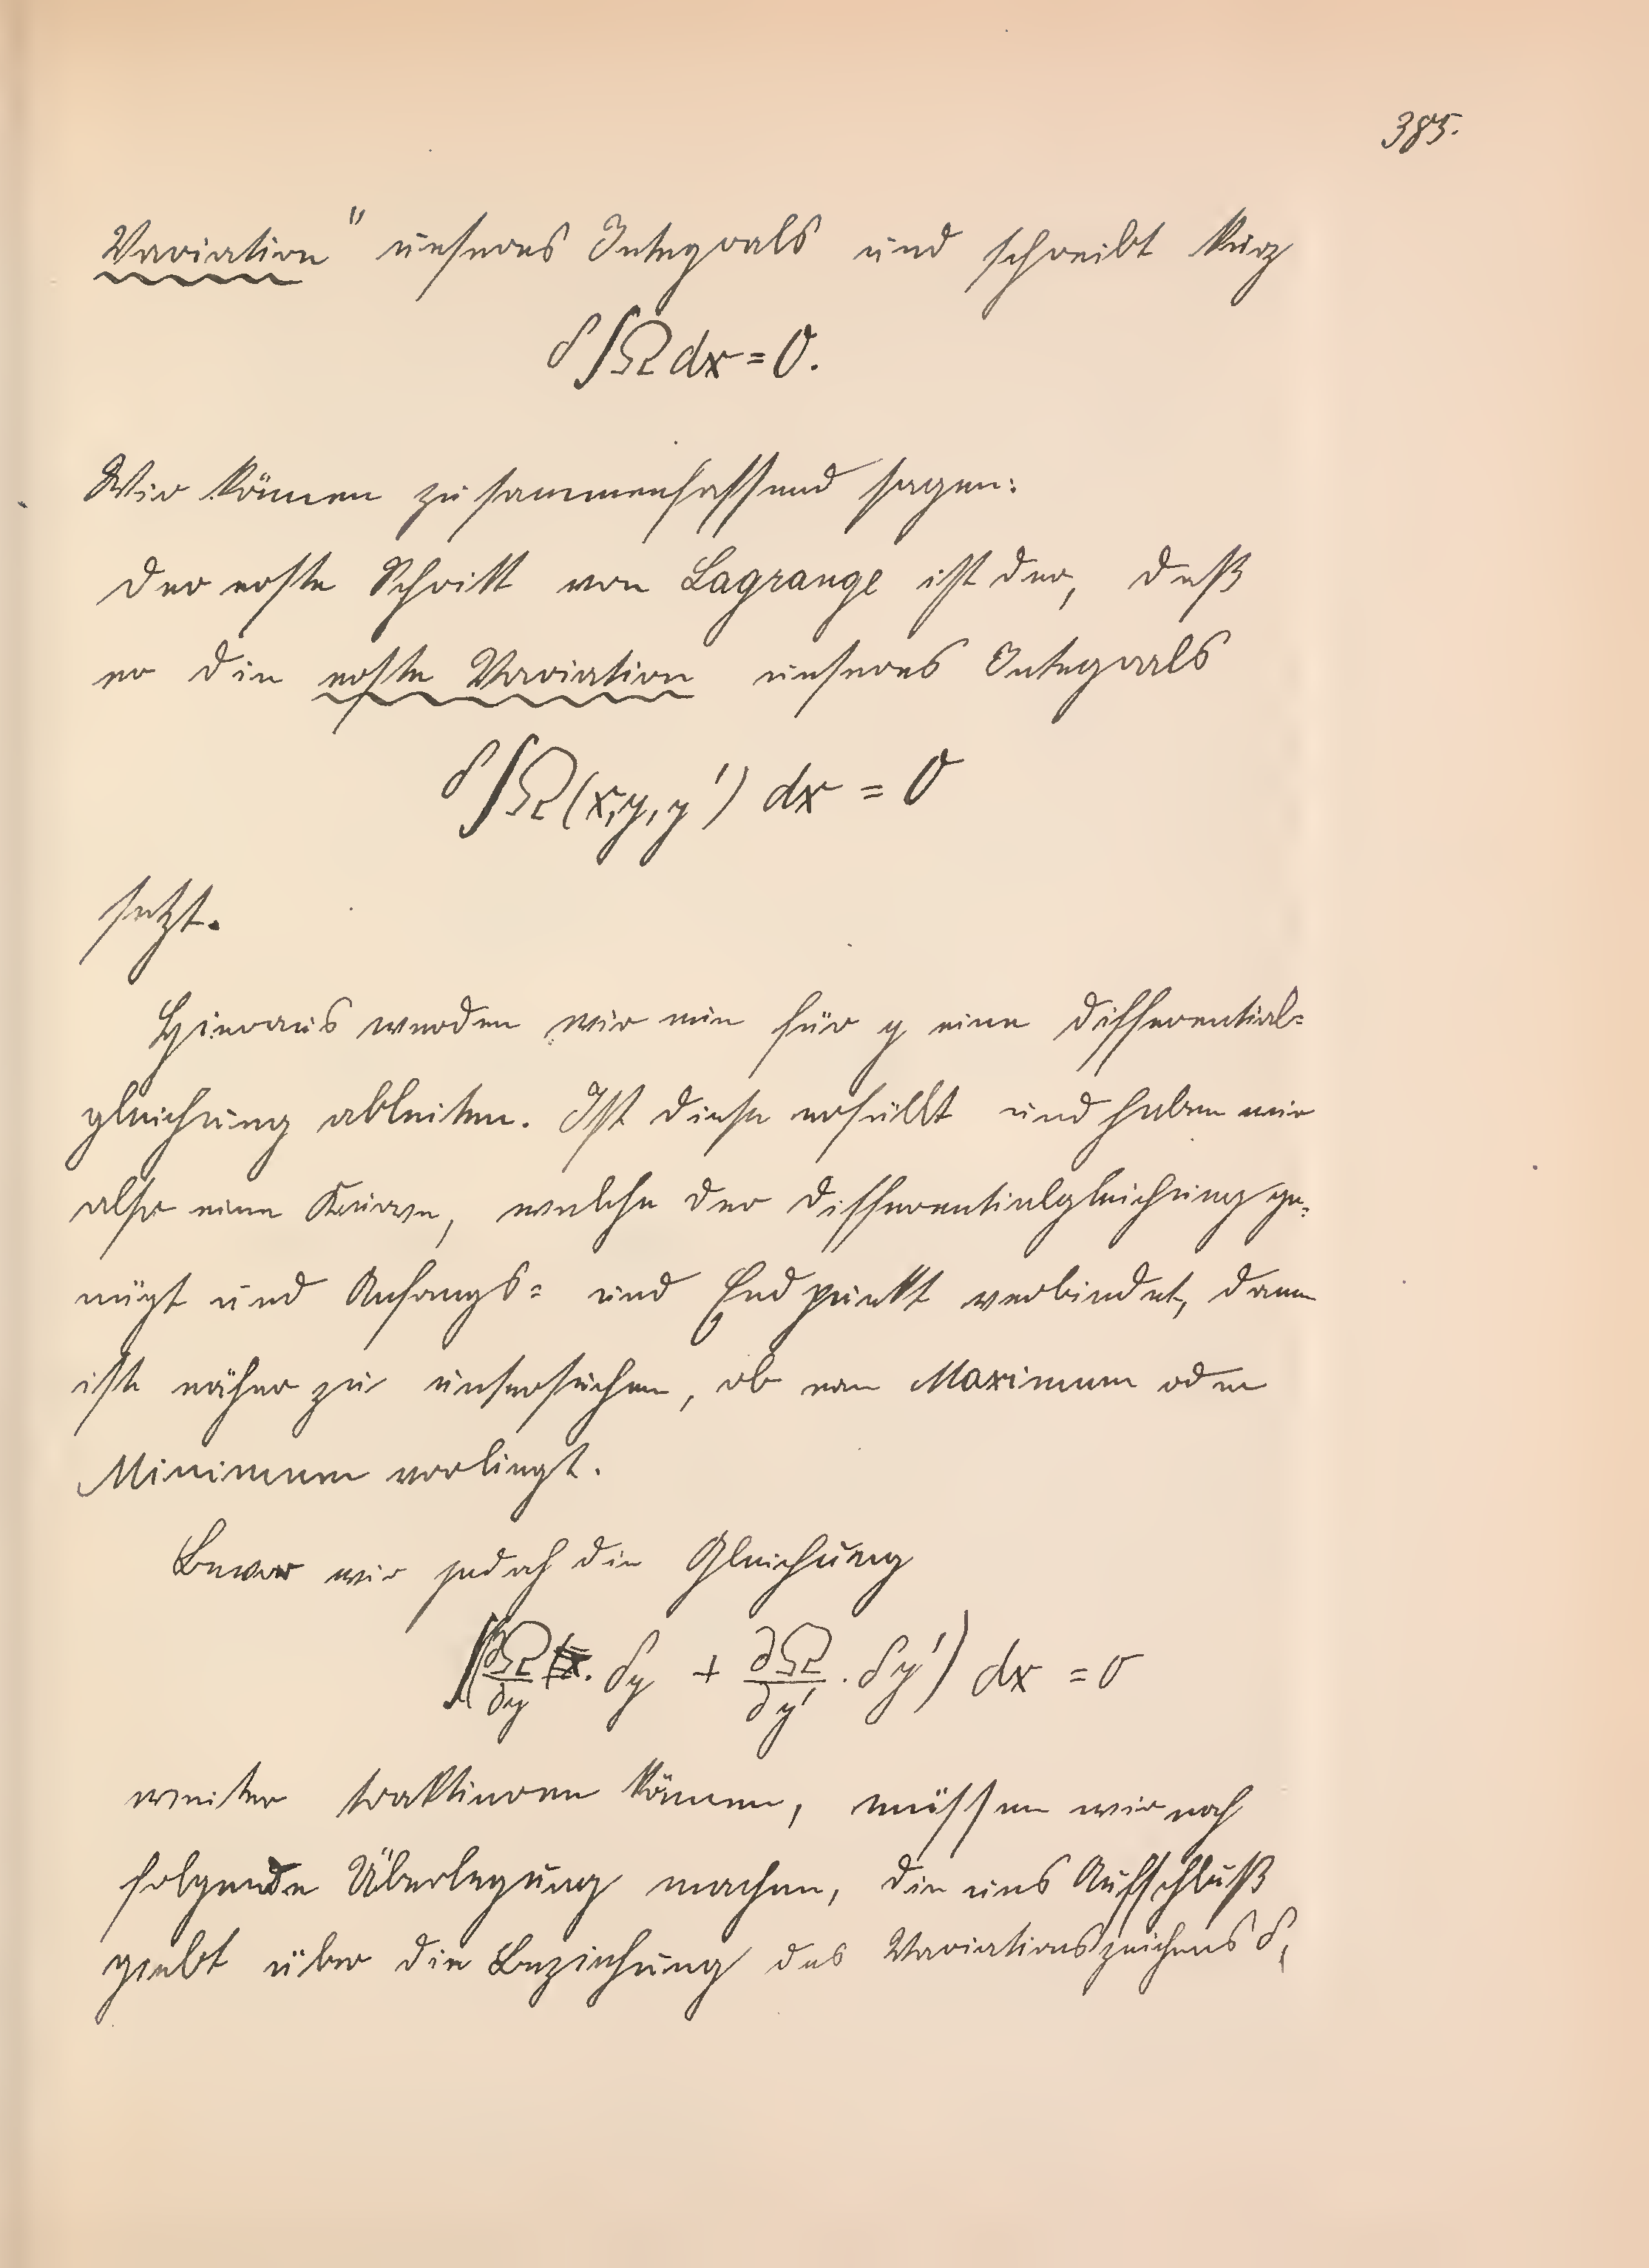 385.
Variation" unseres Integrals und schreibt kurz
δ∫Ω dx = 0.
Wir können zusammenfassend sagen:
Der erste Schritt von Lagrange ist der, daß
er die erste Variation unseres Integrals
δ∫Ω(x,y,y') dx = 0
setzt.
Hieraus werden wir nun für y eine Differential=
gleichung ableiten. Ist diese erfüllt und haben wir
also eine Kurve, welche der Differentialgleichung ge=
nügt und Anfangs= und Endpunkt verbindet, dann
ist näher zu untersuchen, ob ein Maximum oder
Minimum vorliegt.
Bevor wir jedoch die Gleichung
∫(∂Ω/∂y · δy + ∂Ω/∂y' · δy') dx = 0
weiter traktieren können, müssen wir noch
folgende Überlegung machen, die uns Aufschluß
giebt über die Beziehung des Variationszeichens δ,